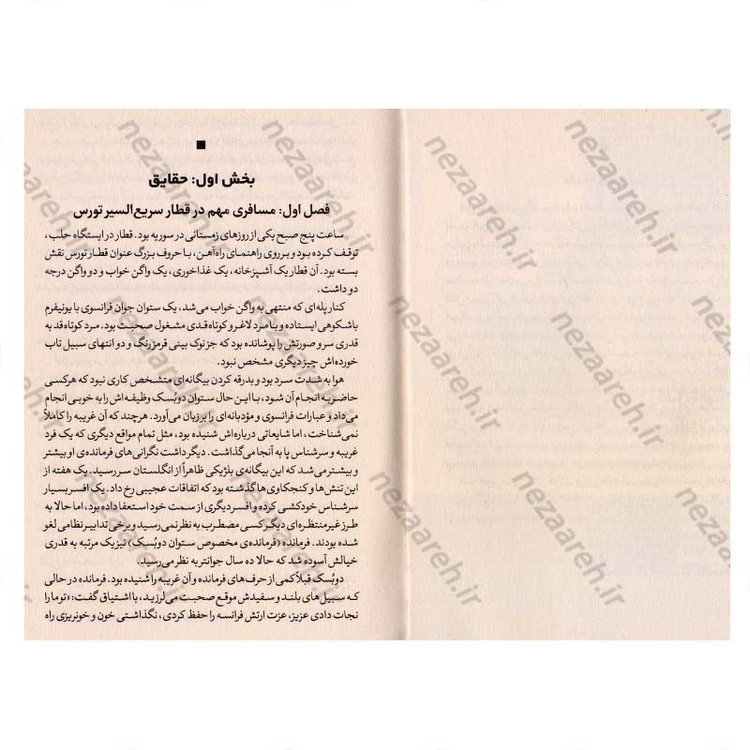 بخش اول: حقایق
فصل اول: مسافری مهم در قطار سریع‌السیر تورس
ساعت پنج صبح یکی از روزهای زمستانی در سوریه بود. قطار در ایستگاه حلب،
توقف کرده بود و بر روی راهنمای راه‌آهن، با حروف بزرگ عنوان قطار تورس نقش
بسته بود. آن قطار یک آشپزخانه، یک غذاخوری، یک واگن خواب و دو واگن درجه
دو داشت.
کنار پله‌ای که منتهی به واگن خواب می‌شد، یک ستوان جوان فرانسوی با یونیفرم
باشکوهی ایستاده و با مرد لاغر و کوتاه قدی مشغول صحبت بود. مرد کوتاه قد به
قدری سر و صورتش را پوشانده بود که جز نوک بینی قرمز رنگ و دو انتهای سبیل تاب
خورده‌اش چیز دیگری مشخص نبود.
هوا به شدت سرد بود و بدرقه کردن بیگانه‌ای متشخص کاری نبود که هرکسی
حاضر به انجام آن شود، با این حال ستوان دوبُسک وظیفه‌اش را به خوبی انجام
می‌داد و عبارات فرانسوی و مؤدبانه‌ای را بر زبان می‌آورد. هرچند که آن غریبه را کاملاً
نمی‌شناخت، اما شایعاتی درباره‌اش شنیده بود، مثل تمام مواقع دیگری که یک فرد
غریبه و سرشناس پا به آنجا می‌گذاشت. دیگر داشت نگرانی‌های فرمانده‌ی او بیشتر
و بیشتر می‌شد که این بیگانه‌ی بلژیکی ظاهراً از انگلستان سر رسید. یک هفته از
این تنش‌ها و کنجکاوی‌ها گذشته بود که اتفاقات عجیبی رخ داد. یک افسر بسیار
سرشناس خودکشی کرده و افسر دیگری از سمت خود استعفا داده بود، اما حالا به
طرز غیرمنتظره‌ای دیگر کسی مضطرب به نظر نمی‌رسید و برخی تدابیر نظامی لغو
شده بودند. فرمانده (فرمانده‌ی مخصوص ستوان دوبُسک) نیز یک مرتبه به قدری
خیالش آسوده شد که حالا ده سال جوانتر به نظر می‌رسید.
دوبُسک قبلاً کمی از حرف‌های فرمانده و آن غریبه را شنیده بود. فرمانده در حالی
که سبیل‌های بلند و سفیدش موقع صحبت می‌لرزید، با اشتیاق گفت: «تو ما را
نجات دادی عزیز، عزت ارتش فرانسه را حفظ کردی، نگذاشتی خون و خونریزی راه
nezaareh.ir
nezaareh.ir
nezaareh.ir
nezaareh.ir
nezaareh.ir
nezaareh.ir
nezaareh.ir
nezaareh.ir
nezaareh.ir